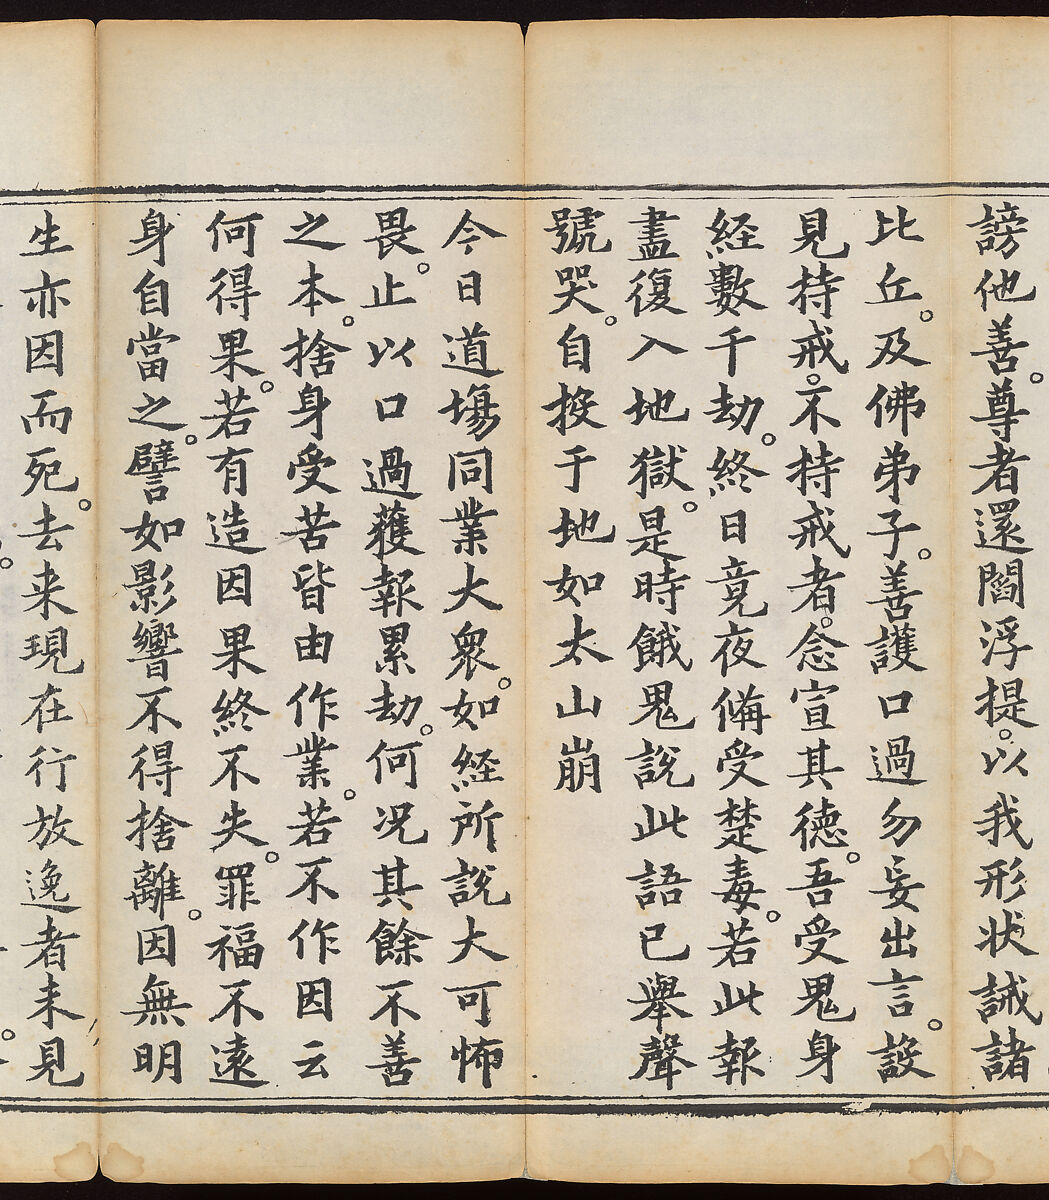 謗他善。尊者還閻浮提。以我形状誡諸
比丘。及佛弟子。善護口過勿妄出言。設
見持戒。不持戒者。念宣其德。吾受鬼身
経數千劫。終日竟夜備受楚毒。若此報
盡復入地獄。是時餓鬼說此語已舉聲
號哭。自投于地如太山崩
今日道場同業大衆。如経所說大可怖
畏。止以口過獲報累劫。何况其餘不善
之本。捨身受苦皆由作業。若不作因云
何得果。若有造因果終不失。罪福不遠
身自當之。譬如影響不得捨離。因無明
生亦因而死。去来現在行放逸者未見